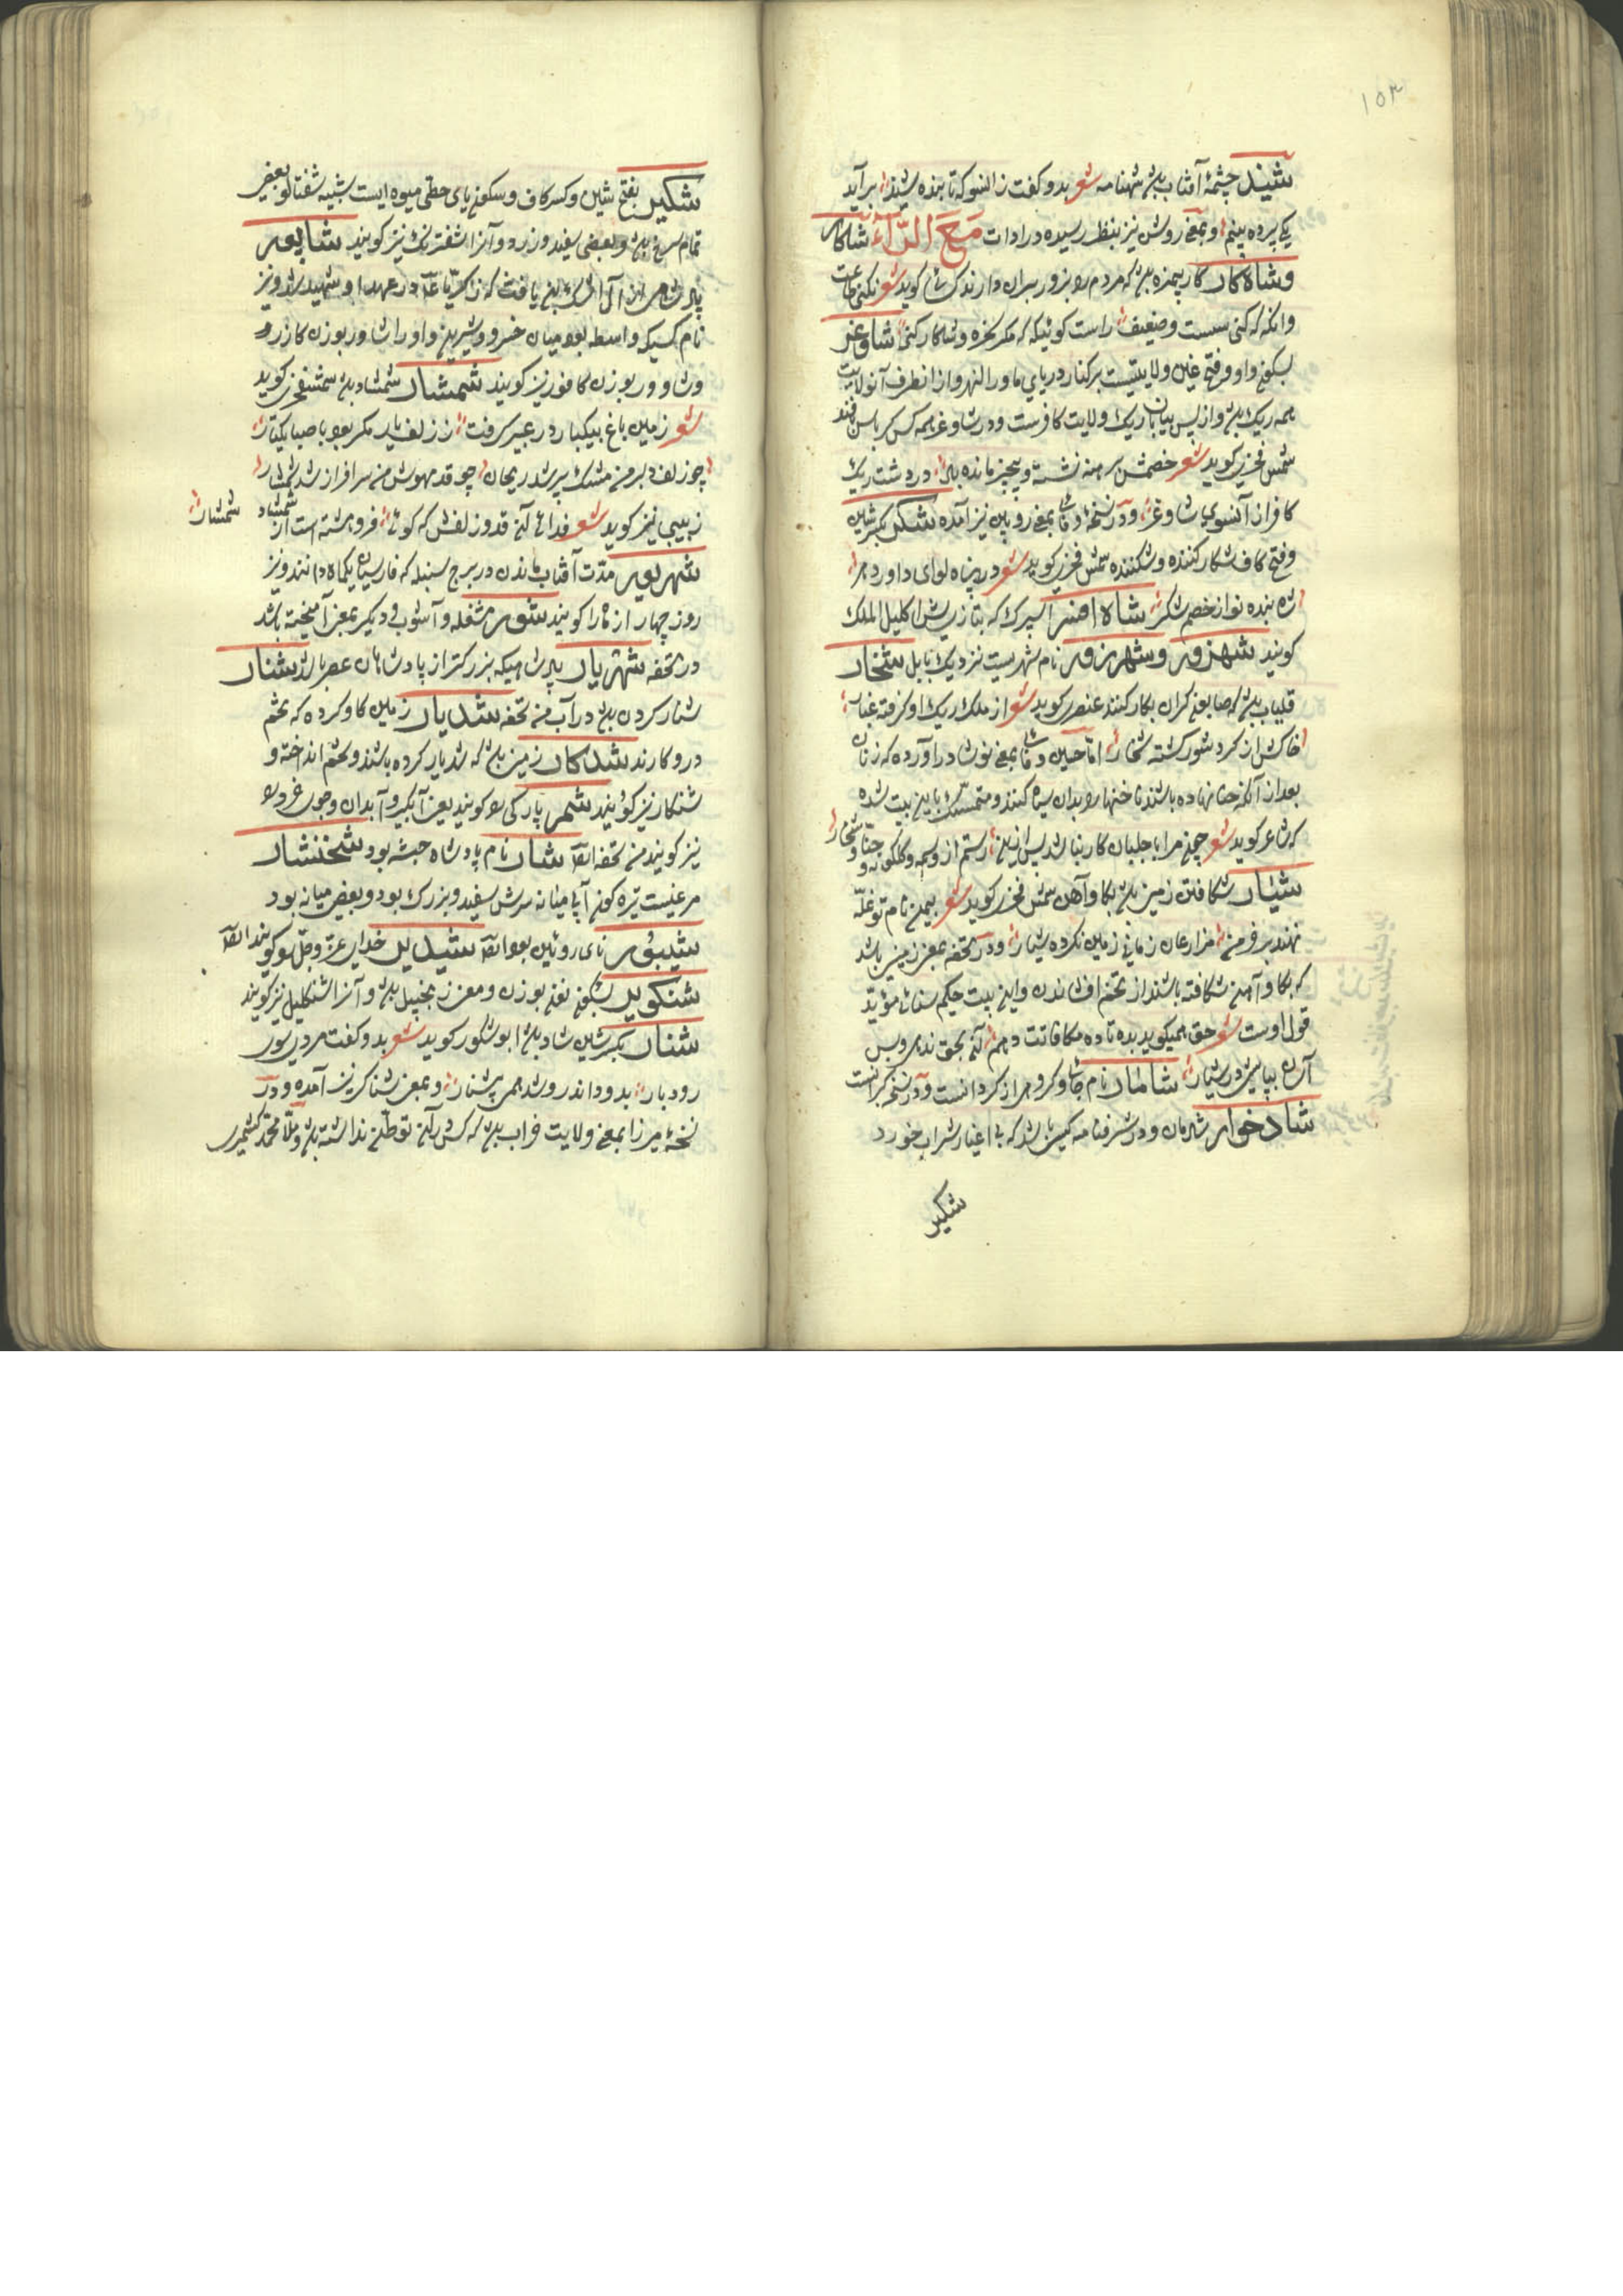 ۱۵۳
شید چشمهٔ آفتاب باشد شهنامه شعر بدو گفت زانسو که تابنده شید برآید
یکی پرده بینم و بمعنی روشن نیز بنظر رسیده در ادات مَعَ الرّاء شاکار
و شاه کار کار بیمزه باشد که مردم را بزور بران دارند کسائی کوید شعر نکنی طاعت
وانکه که کنی سست و ضعیف راست کوئیکه که مکر سخره و شاکار کنی شاوغر
بسکون واو و فتح غین ولایتیست بر کنار دریای ماوراالنهر و از انطرف آنولایت
همه ریک باشد و از پس بیابان ریک ولایت کافرست و در شاوغر همه کس کرباس بافند
شمس فخری کوید شعر خصمش برهنه نشسته و بیچیز مانده باد در دشت ریک
کافر از آنسوی شاوغر و در نسخهٔ وفائی بمعنی رویین نیز آمده شکر بکسر شین
و فتح کاف شکار کننده و شکننده شمس فخری کوید شعر در پناه لوای داور دهر
شه بنده نواز خصم شکر شاه افسر اسپرک که بتازیش اکلیل الملک
کویند شهزور و شهرزور نام شهریست نزدیک بابل شخار
قلیاب باشد که صابون کران بکار کنند عنصری کوید شعر از ملک ریک او کرفته غبار
خاکش از کرد شور کشته شخار اما حسین وفائی بمعنی نوشادر آورده که زنان
بعد از آنکه حنا نهاده باشند تا خنها را بدان سیاه کنند و متمسک باین بیت شده
که شاعر کوید شعر چون مرا با جلبان کار نباشد پس ازین رستم از وسمه و کلکونه و حنا و شخار
شیار شکافتن زمین باشد بکاو آهن شمس فخری کوید شعر بیمن نام تو غله
نهند بر خرمن مزارعان زمانی زمین نکرده شیار و در تحفه بمعنی زمینی باشد
که بکاو آهن شکافته باشند از تخم افشاندن و این بیت حکیم سنائی مؤید
قول اوست شعر حق همیکوید بده تا ده مکافاتت دهم آن بحق ندهی و پس
آری بپاشی در شیار شاماار نام جائی و کروهی از کردانست و در نسخه کرانست
شادخوار شادمان و در شرفنامه کسی باشد که بی اغیار شراب خورد
شکیر
شکیر بفتح شین و کسر کاف و سکون یای حطی میوه ایست شبیه شفتالو بعضی
تمام سرخ باشد و بعضی سفید و زرد و آنرا شفترنک نیز کویند شاپور
نام کسیکه واسطه بود میان خسرو و شیرین و او را شاور بوزن کازر
و شاوور بوزن کافور نیز کویند شمشار شمشاد باشد شمس فخری کوید
شعر زمین باغ بیکبار در عبیر کرفت ز زلف یار مکر بود با صبا یکتار
چو زلف دلبر من مشک بیز شد ریحان چو قد مهوش من سرافراز شد شمشار
زبیبی نیز کوید شعر فدای آن قد و زلفش که کوئی فروهشته است از شمشاد شمشار
شهریور مدت آفتاب ماندن در برج سنبله که فارسیان یکماه دانند و نیز
روز چهارم از ماه را کویند شور مشغله و آشوب و دیکر بمعنی آمیخته باشد
در تحفه شهریار پادشاهیکه بزرکتر از پادشاهان عصر باشد شنار
شنار کردن باشد در آب من تحفه شدیار زمین کاو کرده که تخم
درو کارند شدکار زمین باشد که شدیار کرده باشند و تخم انداخته و
شنکار نیز کویند شمر پارکی را کویند یعنی آبکیر و آبدان و حوض خرد را
نیز کویند من تحفه ایضا شار نام پادشاه حبشه بود شخنشار
مرغیست تیره کون آبی میانه سرش سفید و بزرک بود و بعضی میانه بود
شیپور نای روئین بود ایضا شیدایر خدای عز و جل را کویند ایضا
شنکویر بسکون نون بوزن و معنی زنجبیل باشد و آنرا شنکلیل نیز کویند
شنار بکسر شین شناه باشد ابوشکور کوید شعر بدو کفت مردی سوی
رودبار برود اندر و شد همی بی شنار و بمعنی شناکر نیز آمده و در
نسخهٔ میرزا بمعنی ولایت خراب باشد که کس در آن توطن نداشته باشد و ملا محمد کشمیری